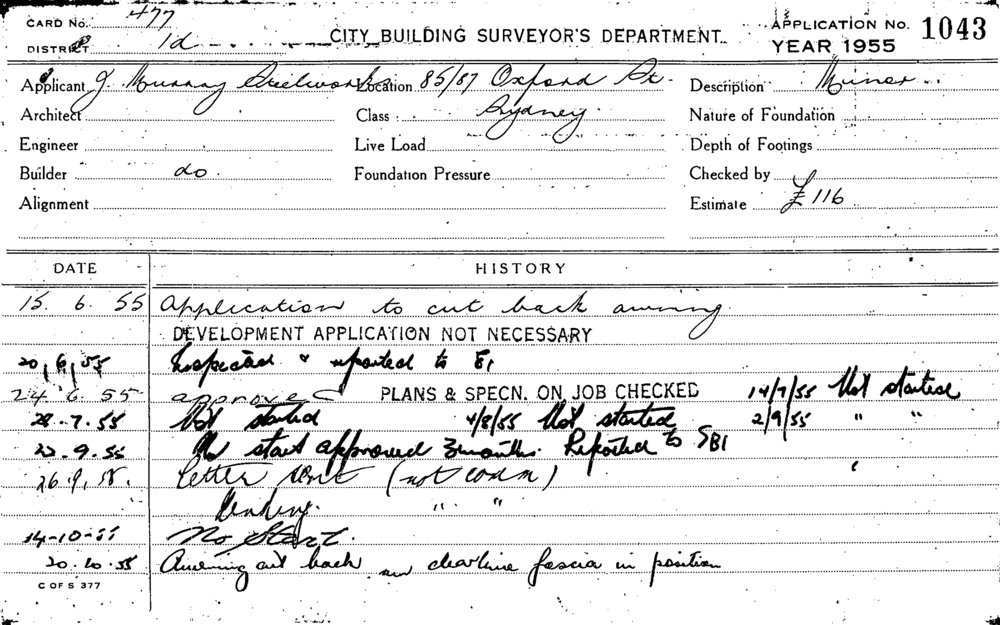 CARD No. 477
DISTRICT 1d
CITY BUILDING SURVEYOR'S DEPARTMENT
APPLICATION No. 1043
YEAR 1955
Applicant J. Murray Steelworks Location 85/87 Oxford St. Description Minor
Architect Class Sydney Nature of Foundation
Engineer Live Load Depth of Footings
Builder do. Foundation Pressure Checked by
Alignment Estimate £116
DATE HISTORY
15. 6. 55 Application to cut back awning
DEVELOPMENT APPLICATION NOT NECESSARY
20/6/55 Inspected & reported to
24. 6. 55 approved PLANS & SPECN. ON JOB CHECKED 14/7/55 Not started
28.7.55 Not started 4/8/55 Not started 2/9/55 " "
22.9.55 No start approved 3 months. Reported to SBI
26.9.55. Letter sent (not comm)
" "
14-10-55 No Start.
20.10.55 Awning cut back new clearline fascia in position
C OF S 377